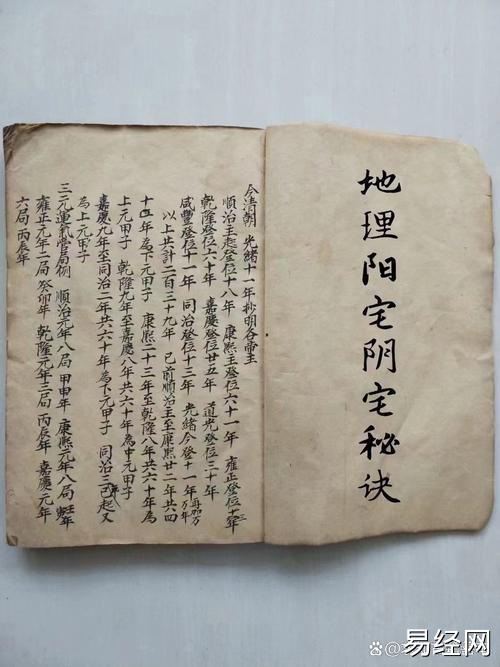 地理阳宅阴宅秘诀
今清朝 光緒十一年抄明各帝主
順治主起登位十八年 康熙主登位六十一年 雍正登位十三年
乾隆登位六十年 嘉慶登位廿五年 道光登位三十年
咸豐登位十一年 同治登位十三年 光緒今登十一年 万年
以上共計二百三十九年 已前順治主至康熙廿二年共四
十四年為下元甲子 康熙二十三年至乾隆八年共六十年為
上元甲子 乾隆九年至嘉慶八年共六十年為中元甲子
嘉慶九年至同治二年共六十年為下元甲子 同治三年起又
為上元甲子
三元運氣當局例 順治元年八局 甲申年 康熙元年八局 壬年
雍正元年二局 癸卯年 乾隆元年三局 丙辰年 嘉慶元年
六局 丙辰年
易经网